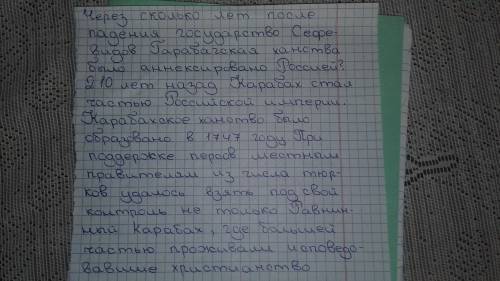 Через сколько лет после
падения государство Сефе-
видов Гарабагская ханства
было аннексировано Россией?
210 лет назад Карабах стал
частью Российской империи.
Карабахское ханство было
образовано в 1747 году При
поддержке персов местным
правителям из числа тюр-
ков удалось взять под свой
контроль не только Равнин-
ный Карабах, где большей
частью проживали исповедо-
вавшие христианство